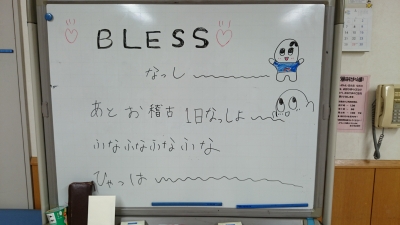 BLESS
なっし〜
あとお稽古1日なっしよ〜
ふなふなふなふな
ひゃっは〜